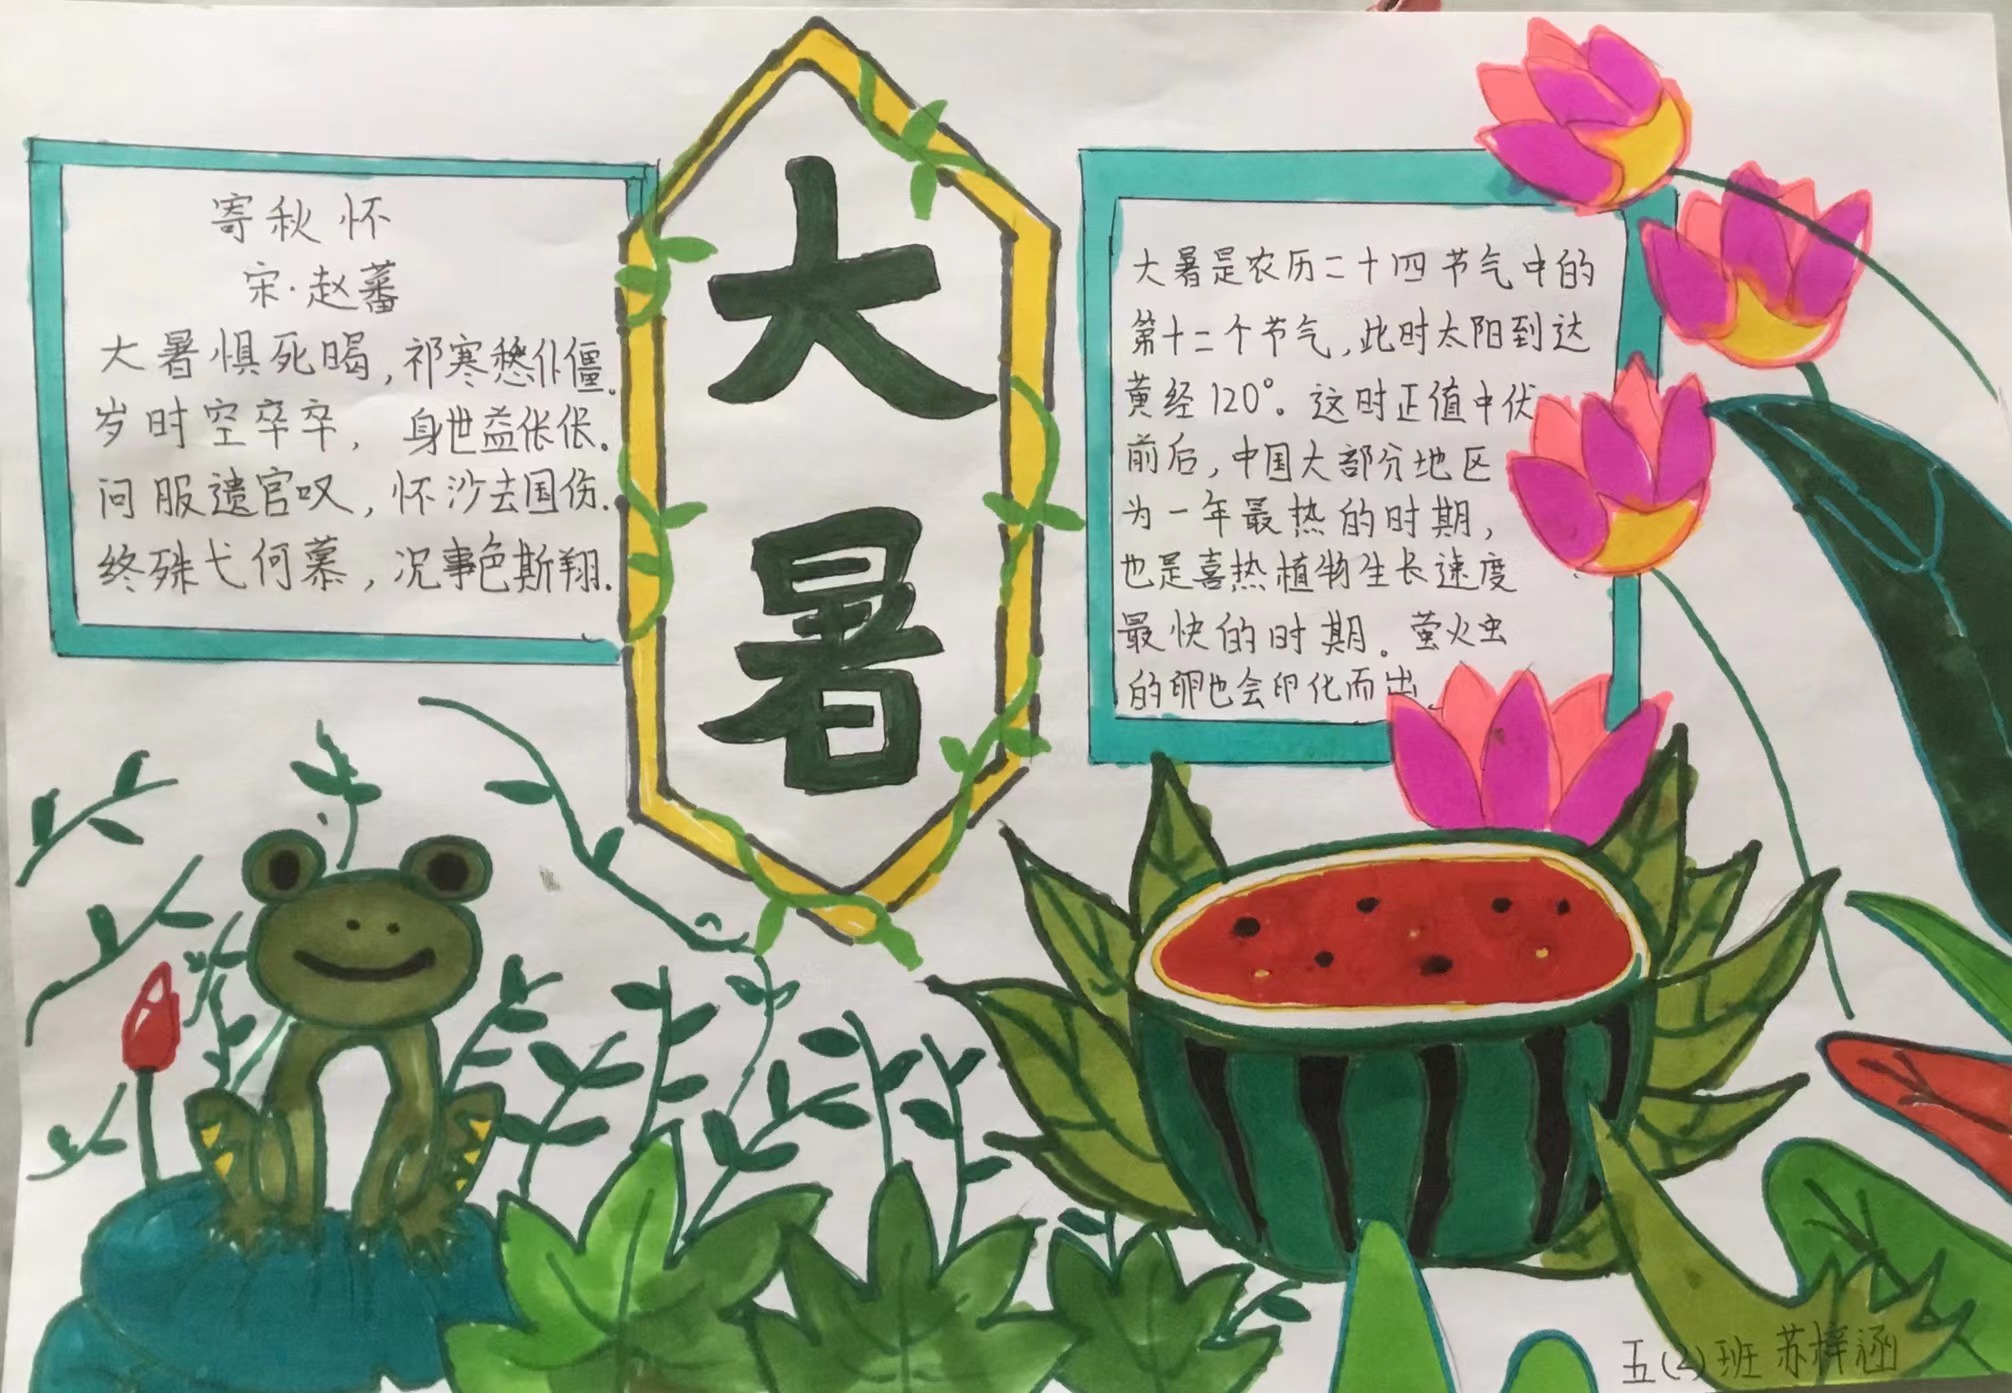 寄秋怀
宋·赵蕃
大暑惧死暍,祁寒愁仆僵.
岁时空卒卒,身世益伥伥.
问服遣官叹,怀沙去国伤.
终殊弋何慕,况事色斯翔.
大
暑
大暑是农历二十四节气中的
第十二个节气,此时太阳到达
黄经120°。这时正值中伏
前后,中国大部分地区
为一年最热的时期,
也是喜热植物生长速度
最快的时期。萤火虫
的卵也会卵化而出
五(2)班 苏梓涵